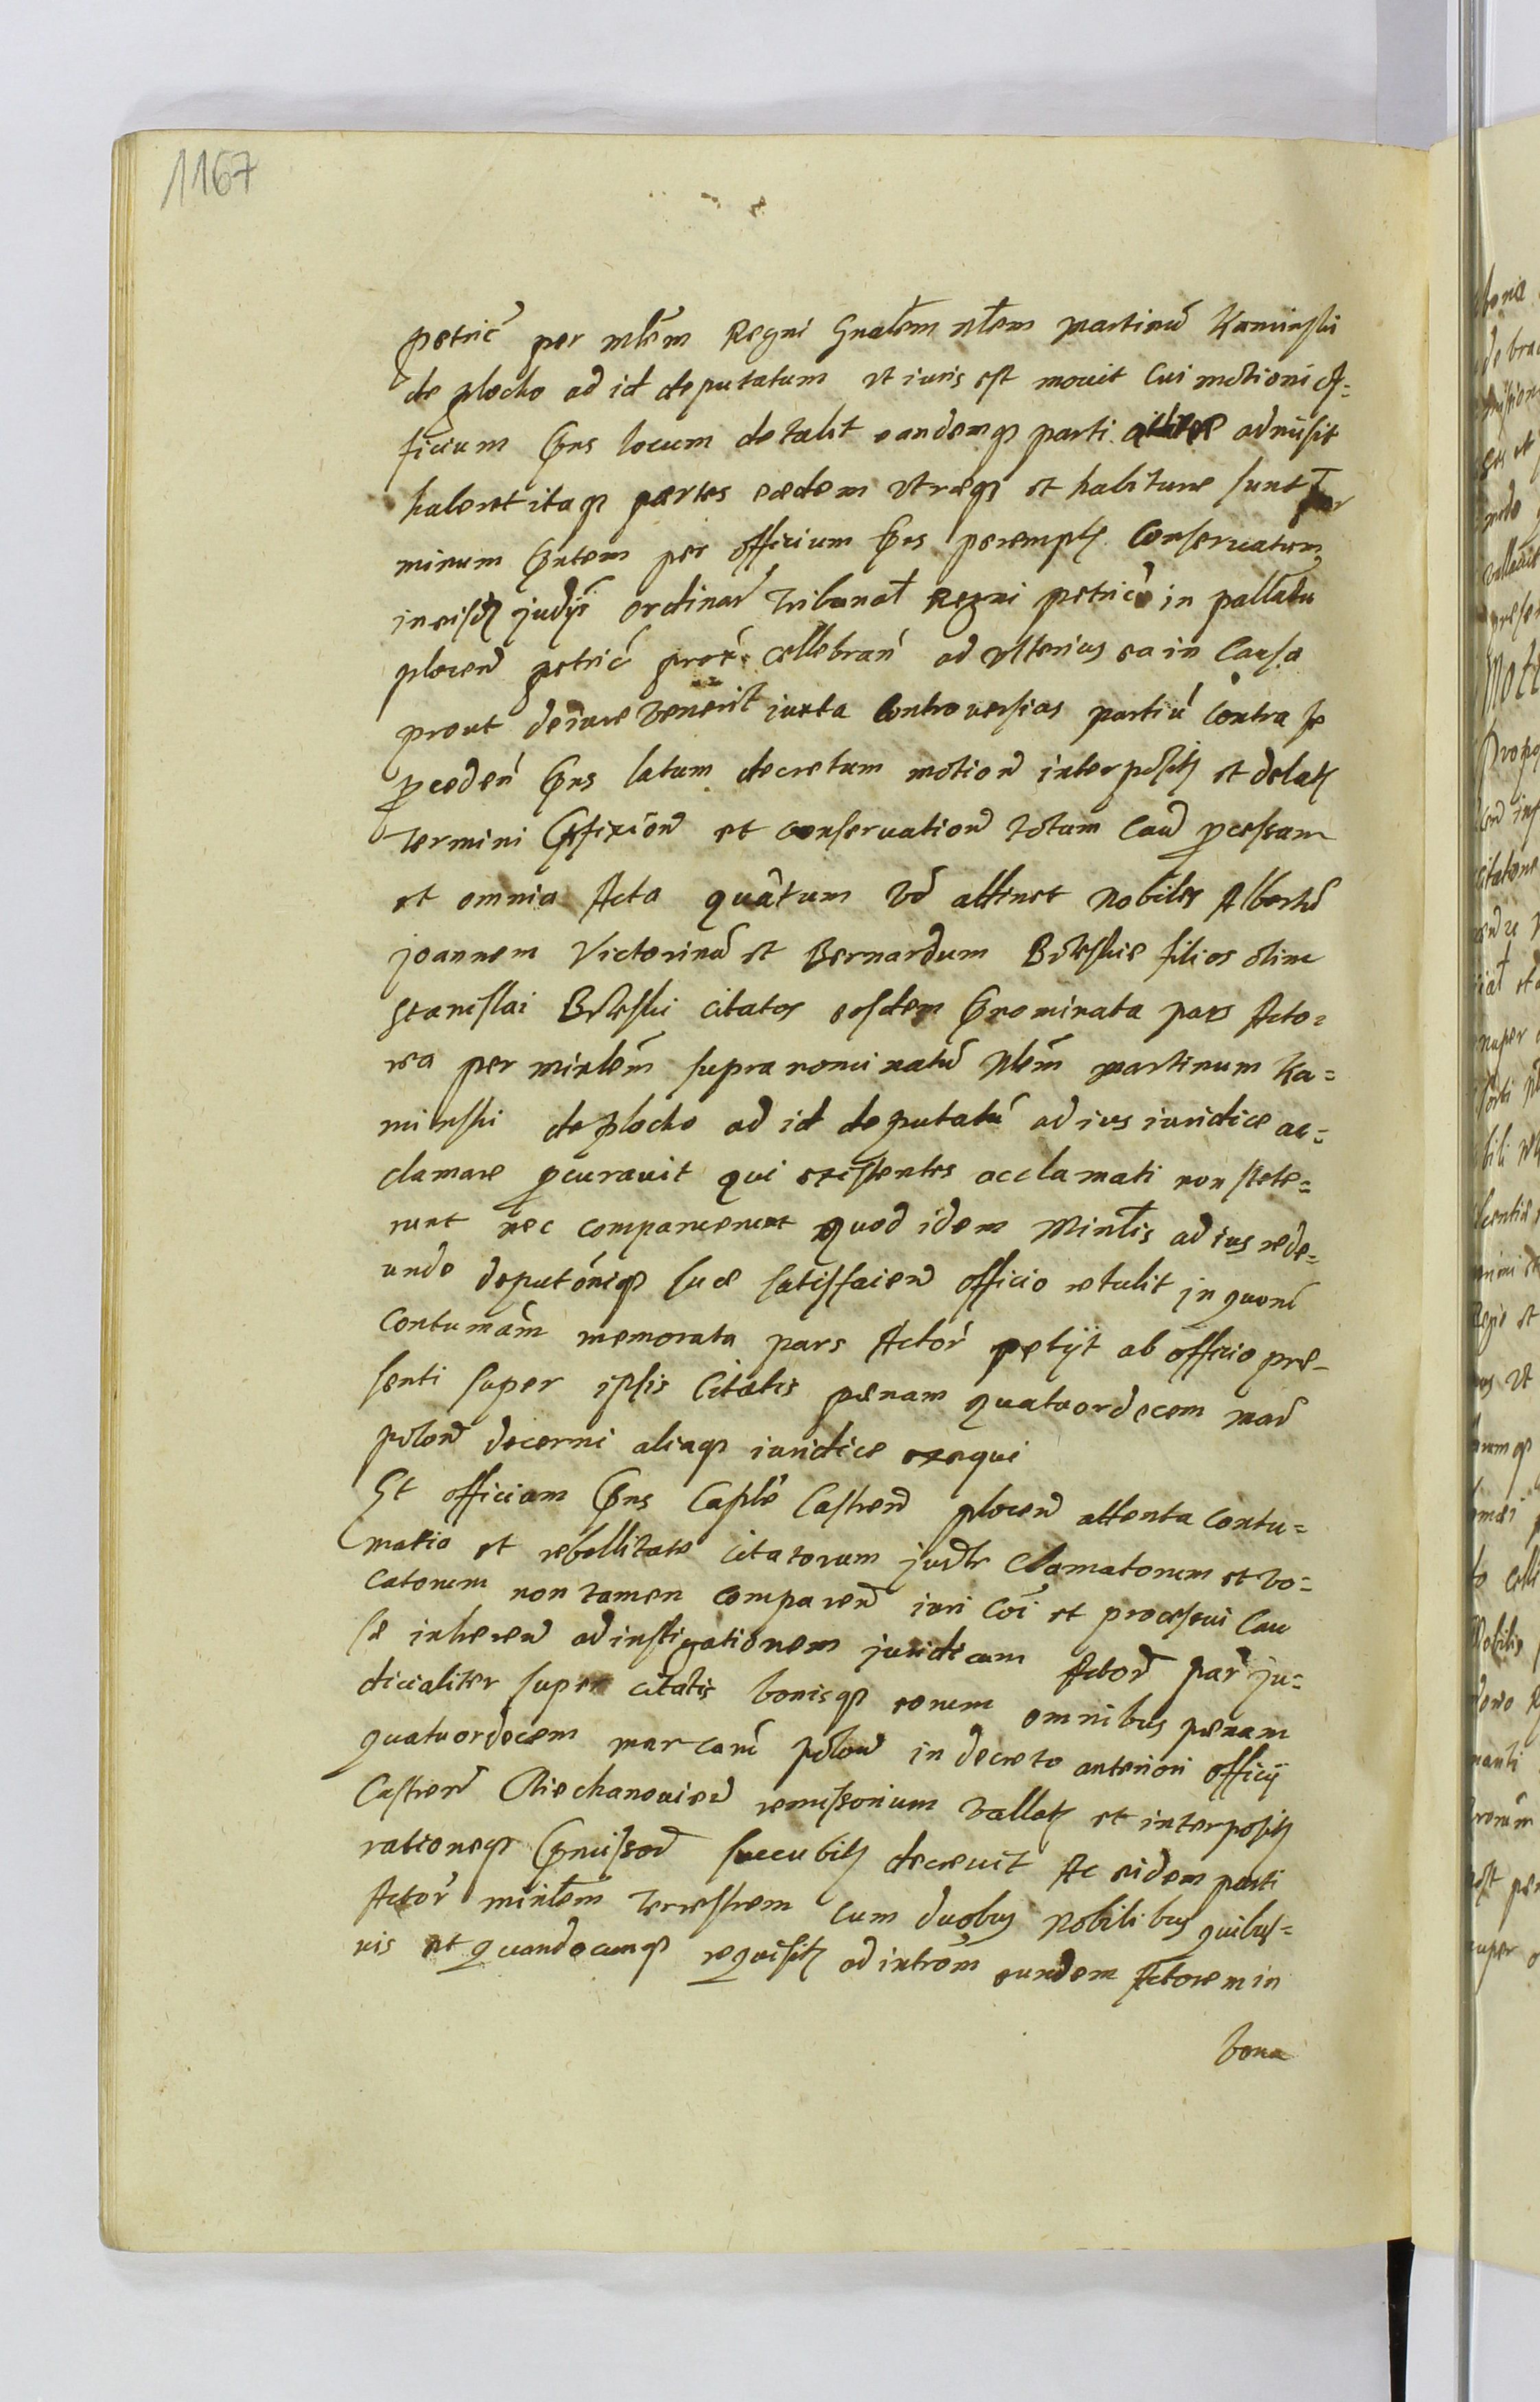 1167
petric̃ per mlẽm Regni Gnałem Nłem Martinũ Kaminski
de Plocko ad id deputatum vt iuris est mouit Cui motioni of-
ficium p̃ns locum detulit eandemq3 parti admisit
habent itaq3 partes eædem vtræq3 et habituræ sunt Ter
minum p̃ntem per officium p̃ns perempt3 Conseruatum
in eisd3 judijs ordinar̃ Tribunał Regni petric̃ in pallatio
plocen̄ petric̃ prox̃ cellebrań ad vlterius ea in Causa
prout de iure venerit iuxta Controuersias partiũ Contra se
p̱cedeń p̃ns latum decretum motioñ interposit3 et delat3
Termini p̃fixioñ et conseruatioñ totum Cauſ p̱cessum
et omnia Acta quãtum vő attinet Nobiles Albertũ
Joannem Victorinũ et Bernardum filios olim
Stanislai citatos eosdem p̃nominata pars Acto=
rea per minłẽm supra nominatũ Nłẽm Martinum Ka=
minski de Plocko ad id deputatũ ad ius iuridice ac=
clamare p̱curauit qui existentes acclamati non stete=
runt nec comparuerunt Quod idem Minłis ad ius rede=
undo deputõniq3 suæ satisfacien̄ officio retulit in quorũ
Contumãm memorata pars Actor̃ petijt ab officio præ-
senti super ipsis Citatis pænam quatuordecem mar̃
polon̄ decerni aliaq3 iuridice exequi
Et officium p̃ns Caplẽ Castren̄ plocen̄ attenta Contu=
matia et rebellitate citatorum jurdr̃ Clamatorum et vo=
catorum non tamen comparen̄ iuri Cõi et processui Cau
sæ inheren̄ ad instigationem juridicam Actor̃ par̃ ju=
dicialiter super citatis bonisq3 eorum omnibus pænam
quatuordecem marcarũ polon̄ in decreto anteriori officij
Castren̄ Ciechanouien̄ remissorium vallat3 et interposit3
rationeq3 p̃missor̃ succubit3 decreuit Ac eidem parti
Actor̃ minłẽm terrestrem Cum duobus Nobilibus quibus=
uis et quandocunq3 requisit3 ad intrõm eundem Actorem in
bona